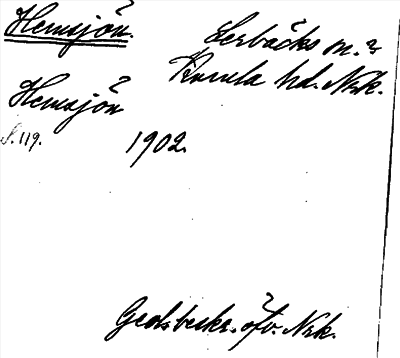 Hemsjön.
Lerbäcks sn.?
Kumla hd. Nrk.
Hemsjön
S. 119.
1902.
Geol. beskr. öfv. Nrk.